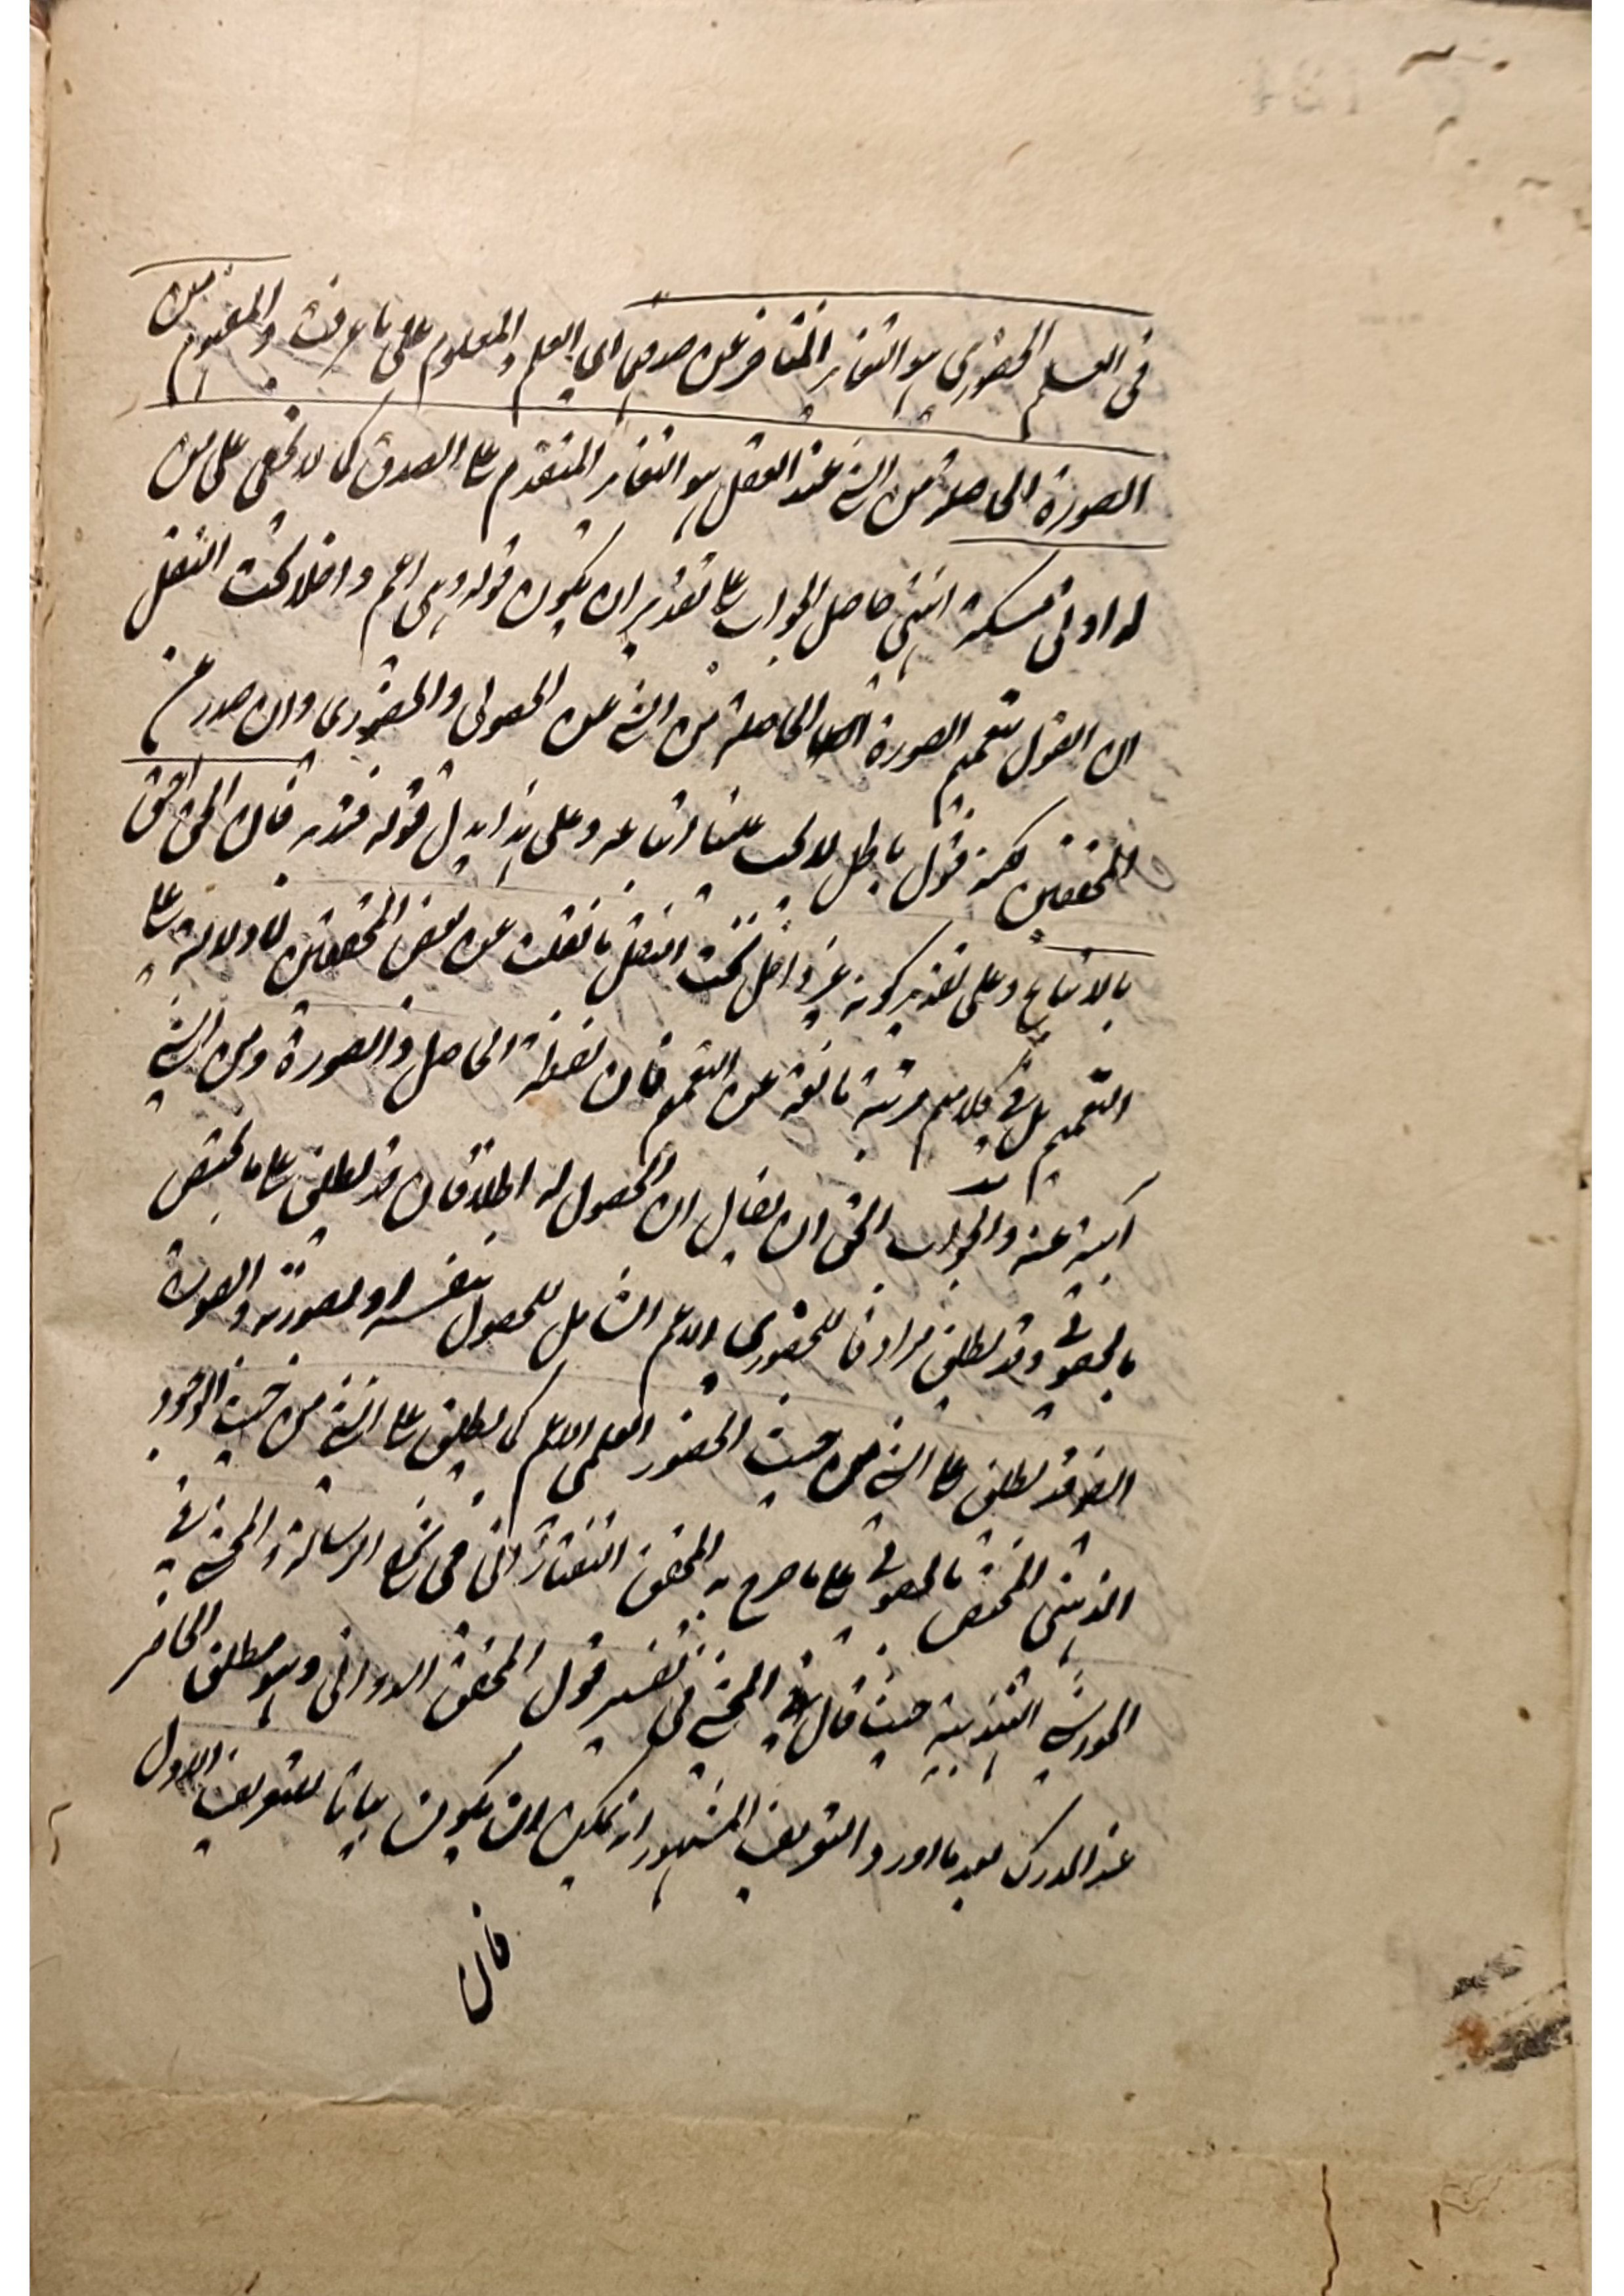 في العلم الحضوري هو التغاير المتأخر عن صدقهما اي العلم والمعلوم على ما عرفت والمفهوم من
الصورة الحاصلة من الشئ عند العقل هو التغاير المتقدم على الصدق كما لا يخفى على من
له ادنى مسكة انتهى حاصل الجواب على تقدير ان يكون قوله وهي اعم داخلا تحت النقل
ان القول بتعميم الصورة الحاصلة من الشئ عن الحصولي والحضوري وان صدر عن
المحققين لكنه قول باطل لا يجب علينا اتباعه وعلى هذا يدل قوله فتدبر فان الحق احق
بالاتباع وعلى تقدير كونه غير داخل تحت النقل ما نقلت عن بعض المحققين لا دلالة له على
التعميم بل في كلامهم قرينة مانعة عن التعميم فان لفظة الحاصل والصورة ومن الشئ
آبية عنه والجواب الحق ان يقال ان الحصول له اطلاقان قد يطلق على ما يختص
بالحصولي وقد يطلق مرادفا للحضوري الاعم الشامل للحصول بنفسه او بصورته والصورة
ايضا قد يطلق على الشئ من حيث الحضور العلمي الاعم كما يطلق على الشئ من حيث الوجود
الذهني المختص بالحصولي على ما صرح به المحقق التفتازاني في شرح الرسالة والمحشي في
الحواشي التهذيبية حيث قال المحشي في تفسير قول المحقق الدواني وهو مطلق الحاضر
عند المدرك بعد ما اورد التعريف المشهور انه يمكن ان يكون بيانا للتعريف الاول
فان